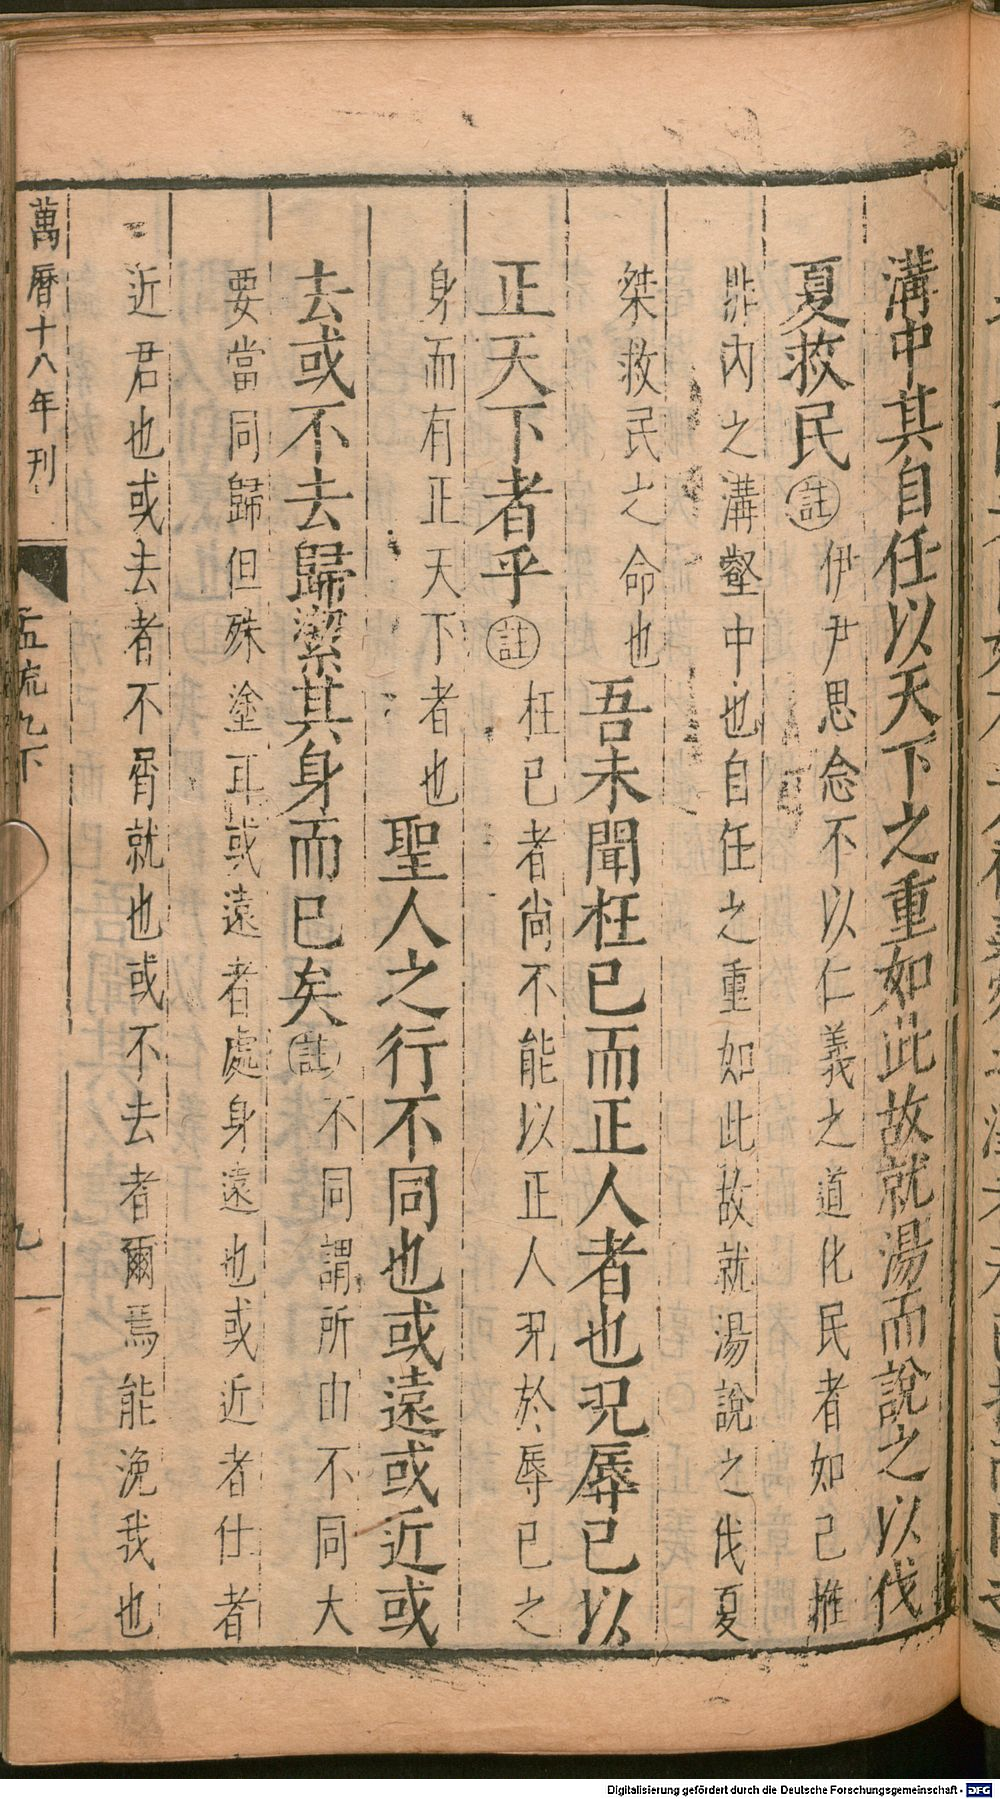 溝中其自任以天下之重如此故就湯而說之以伐
夏救民註伊尹思念不以仁義之道化民者如己推
排內之溝壑中也自任之重如此故就湯說之伐夏
桀救民之命也吾未聞枉己而正人者也況辱己以
正天下者乎註枉己者尚不能以正人況於辱己之
身而有正天下者也聖人之行不同也或遠或近或
去或不去歸潔其身而已矣註不同謂所由不同大
要當同歸但殊塗耳或遠者處身遠也或近者仕者
近君也或去者不屑就也或不去者爾焉能浼我也
萬曆十八年刊
孟疏九下
九
Digitalisierung gefördert durch die Deutsche Forschungsgemeinschaft - DFG